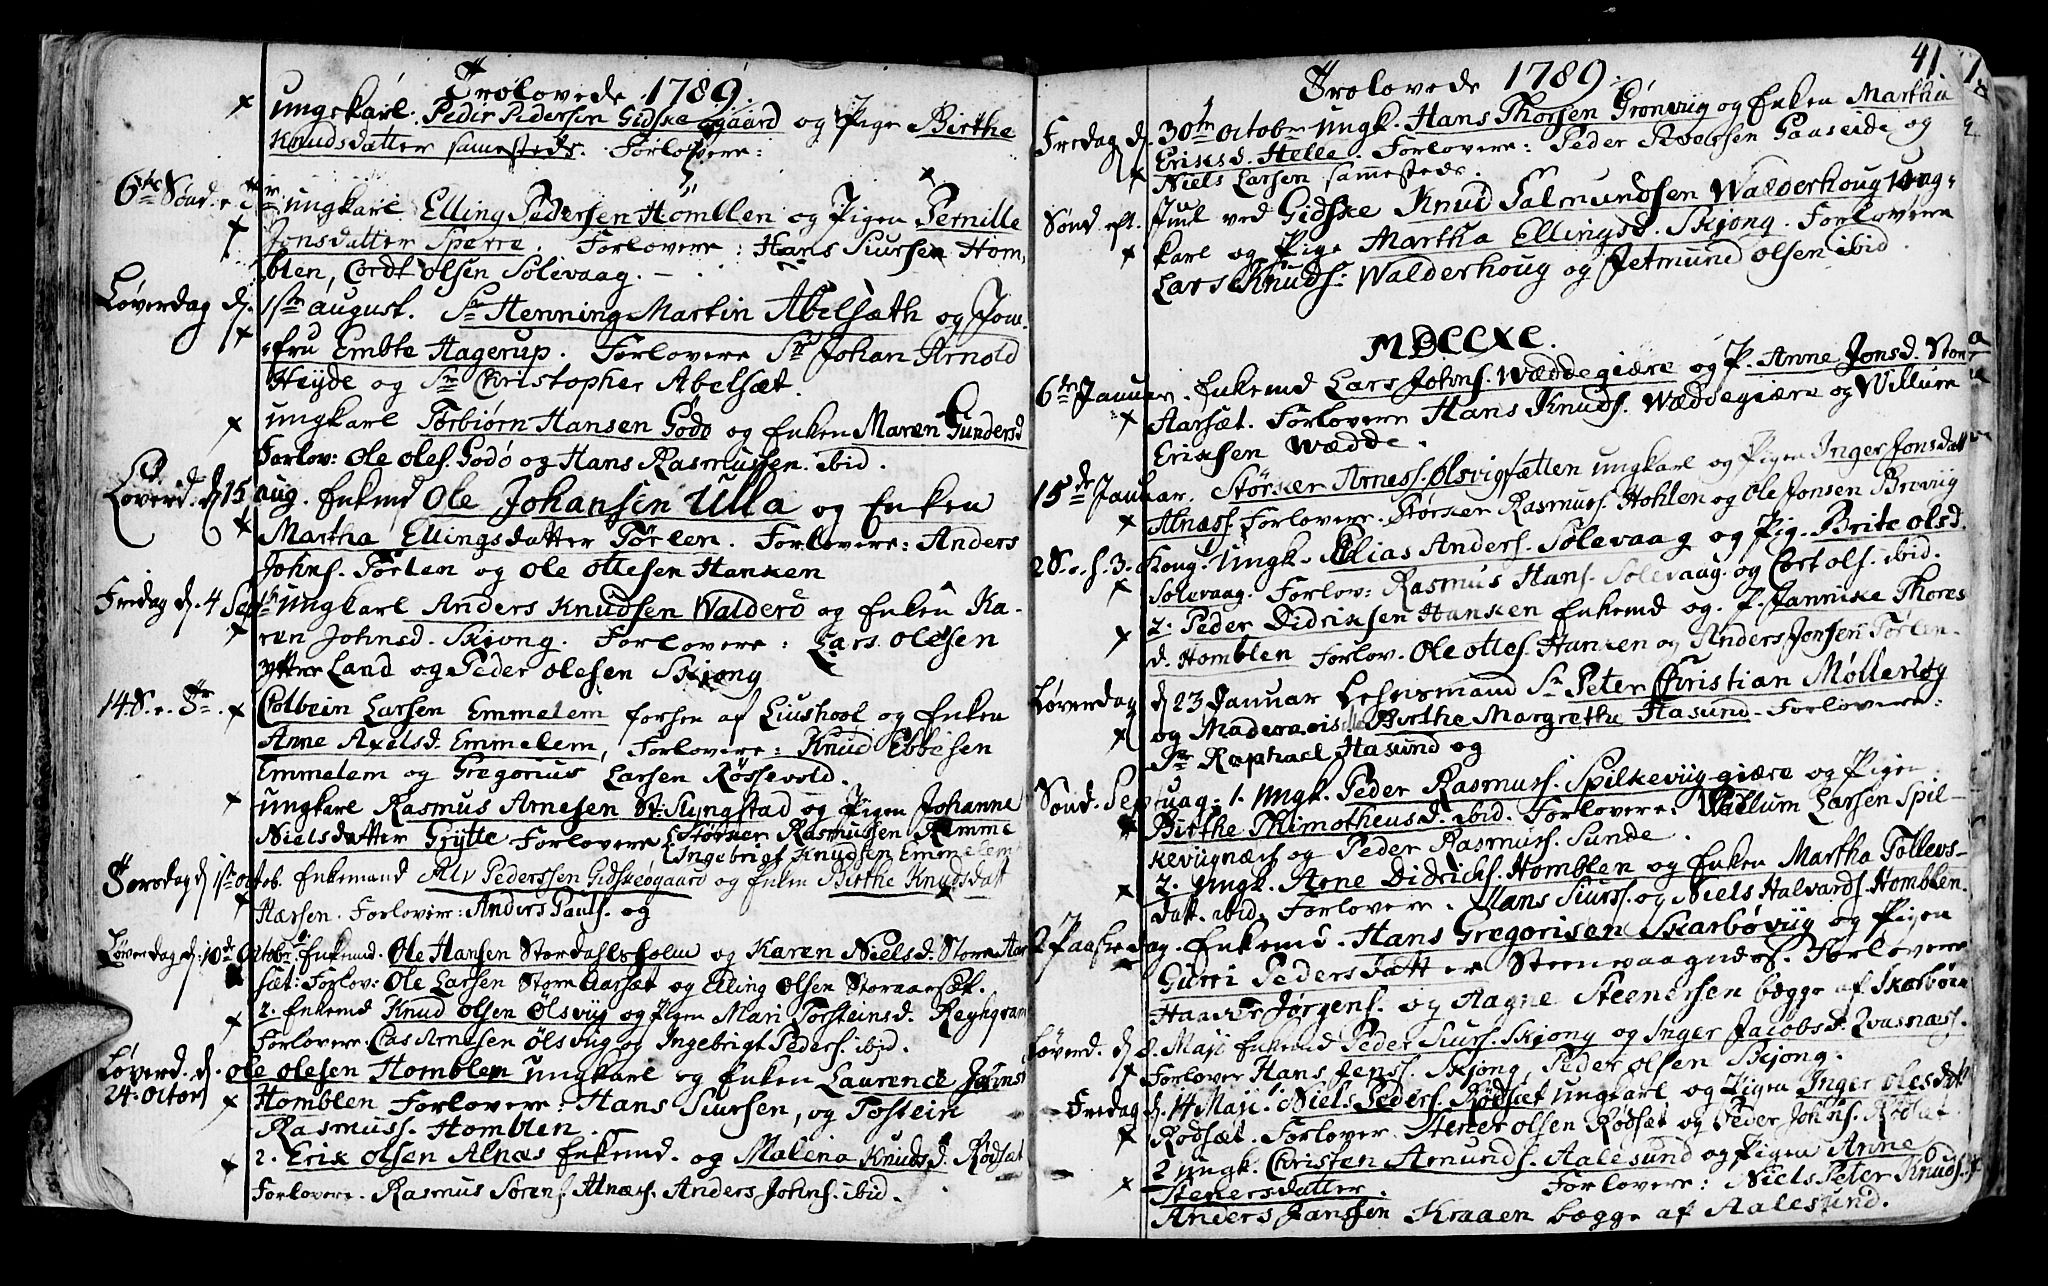 Trolovede 1789
ungekarl. Peder Pedersen Gidskeøgaard og Pige Birthe
Knudsdatter samesteds. Forlovere:
6te Sønd. e. Tr. ungkarl Elling Pedersen Homblen og Pigen Pernille
Jonsdatter Sperre. Forlovere: Hans Siursen Hom,
blen, Cordt olsen Solevaag.
Løverdag d. 1ste august. Sr Henning Martin Abelsæth og Jom-
fru Embte Hagerup. Forlovere Sr Johan Arnold
Heyde og Sr Christopher Abelsæt.
ungkarl Torbiørn Hansen Godø og Enken Maren Gundersd
Forlov: Ole Oles. Godø og Hans Rasmussen. ibid.
Løverd. d. 15 aug. Enkemd Ole Johansen Ulla og Enken
Martha Ellingsdatter Tørlen. Forlovere: Anders
Johns. Tørlen og Ole Ottesen Hanken
Fridag d. 4 Sept. ungkarl Anders Knudsen Walderø og Enken Ka-
ren Johnsd. Skjong. Forlovere: Lars Olesen
ytterLand og Peder Olesen Skjong
14 S. e. Tr. Colbein Larsen Emmelem forhen af Liushool og Enken
Anne Axelsd. Emmelem, Forlovere: Knud Ebbesen
Emmelem og Gregorius Larsen Røssevold.
ungkarl Rasmus Arnesen St. Slyngstad og Pigen Johanne
Nielsdatter Grytte Forlovere Størker Rasmussen Remme
Ingebrigt Knudsen Emmelem
Torsdag d. 1ste Octob. Enkemand Alv Pederssen Gidskeøgaard og Enken Birthe Knudsdatt
Hæsen. Forlovere: Anders Pauls. og
Løverdag d. 10de Octobr Enkemd. Ole Hansen Stordahlsholm og Karen Nielsd. Store Aar
sæt. Forlov: Ole Larsen Store Aarsæt og Elling Olsen Storaarsæt.
2. Enkemd Knud Olsen Ølsvig og Pigen Mari Torsteinsd. Reykgram
Forlovere: Clas Arnesen Ølsvig og Ingebrigt Peders. ibid.
Løverd. d. Ole Olesen Homblem ungkarl og Enken Laurence Johns
24. Octobr Homblen Forlovere: Hans Siursen, og Tostein
Rasmuss. Homblen.
2. Erik Olsen Alnæs Enkemd. og Malena Knudsd. Rødsæt
Forlovere. Rasmus Sørens. Alnæs. Anders Johns. ibid.
41
Trolovede 1789.
Fredag d. 30te Octobr ungk. Hans Thorsen Grønviig og Enken Martha
Eriksd. Helle. Forlovere: Peder Iversen Gaaseide og
Niels Larsen sammesteds.
Sønd. eft. Juul ved Gidske Knud Salmundsen Walderhoug ung-
karl og Pige Martha Ellingsd. Skjong. Forlovere
Lars Knuds. Walderhoug og Jetmund Olsen ibid.
MDCCXC.
6te Januar. Enkemd Lars Johns. Wæddegiære og P. Anne Jonsd. Stor
Aarsæt. Forlovere Hans Knuds. Wæddegiære og Willum
Eriksen Wædde.
15de Januar. Størker Arness. Ølsvigsætten ungkarl og Pigen Inger Jonsdatt
Alnæss. Forlovere. Størker Rasmuss. Hohlen og Ole Jonsen Brevig
2 S. e. H. 3. Kong. Ungk. Elias Anders. Solevaag og Pig. Brite Olsd.
Solevaag. Forlov: Rasmus Hans. Solevaag. og Cort ols. ibid.
2. Peder Didriksen Hanken Enkemd og P. Jannike Thores
d. Homblen Forlov. Ole Ottes. Hanken og Anders Jonsen Tørlen-
Løverdag d. 23 Januar Lehnsmand Sr Peter Christian Møllerløg
og Mademoiselle Birthe Margretha Hasund. Forlovere:
Sr Raphael Hasund og
Sønd. Septuag. 1. Ungk. Peder Rasmuss. Spilkeviiggiære og Pigen
Birthe Thimotheusd. ibid. Forlovere: Willum Larsen Spil-
keviignæs og Peder Rasmuss. Sunde.
2. Ungk. Arne Didricks. Homblen og Enken Martha Tollevs-
datt. ibid. Forlovere. Hans Siurss. og Niels Halvards. Homblen.
2 Paaskedag. Enkemd. Hans Gregorisen Skarbøviig og Pigen
Gurri Pedersdatter Steenvaagnæs. Forlovere
Haaver Jørgens. og Aagne Steenersen begge af Skarbøv
Løverd. d. 8. Maji Enkemd Peder Siurs. Skjong og Inger Jacobsd. Qvasnæss.
Forlover Hans Jenss. Skjong, Peder Olsen Skjong.
Fredag d. 14 Maji. Niels Peders. Rødsæt ungkarl og Pigen Inger olesdatt
Rødsæt. Forlover Stener Olsen Rødsæt og Peder Johns. Rødsæt.
2 ungk. Christen Amunds. Aalesund og Pigen Anne
Stenersdatter. Forlovere: Niels Peter Knuds.
Anders Janssen Kraaen begge af Aalesund.